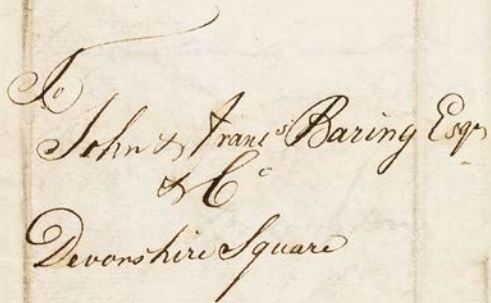 To
John & Franc.s Baring Esqrs
& Co
Devonshire Square